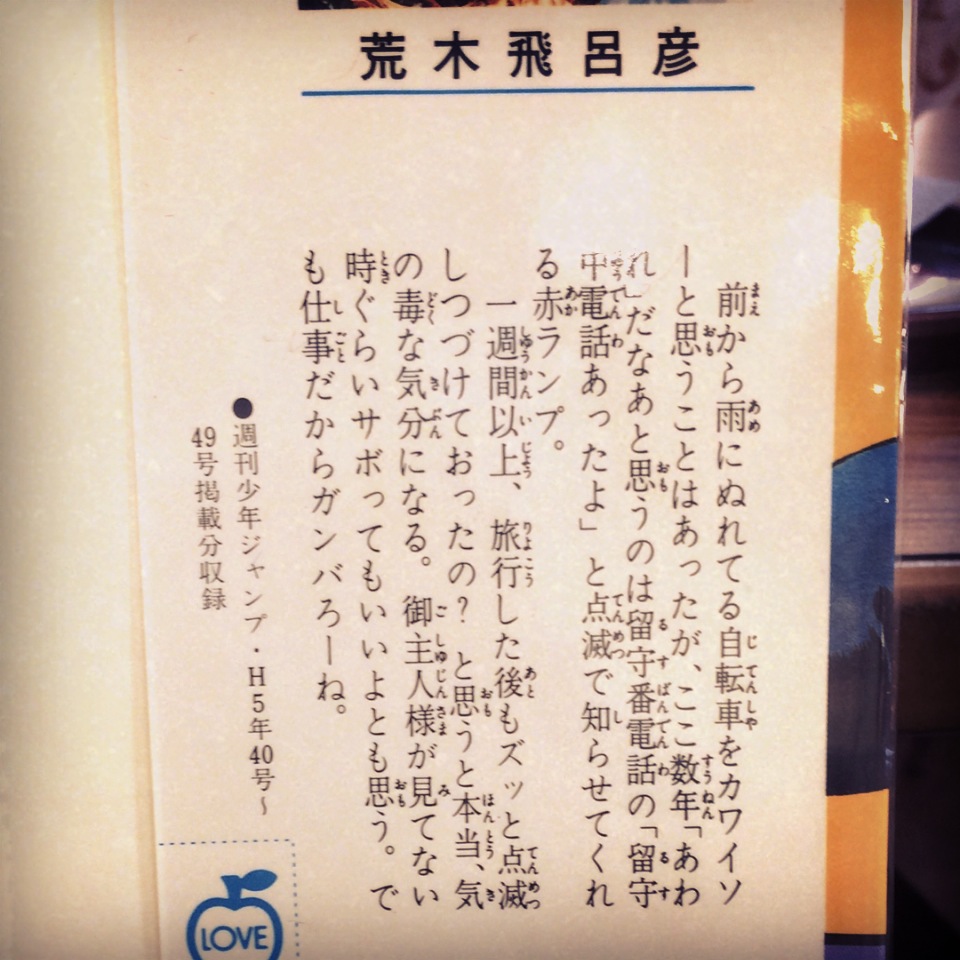 荒木飛呂彦
前から雨にぬれてる自転車をカワイソ
ーと思うことはあったが、ここ数年「あわ
れ」だなあと思うのは留守番電話の「留守
中電話あったよ」と点滅で知らせてくれ
る赤ランプ。
一週間以上、旅行した後もズッと点滅
しつづけておったの？と思うと本当、気
の毒な気分になる。御主人様が見てない
時ぐらいサボってもいいよとも思う。で
も仕事だからガンバろーね。
●週刊少年ジャンプ・H5年40号〜
49号掲載分収録
LOVE